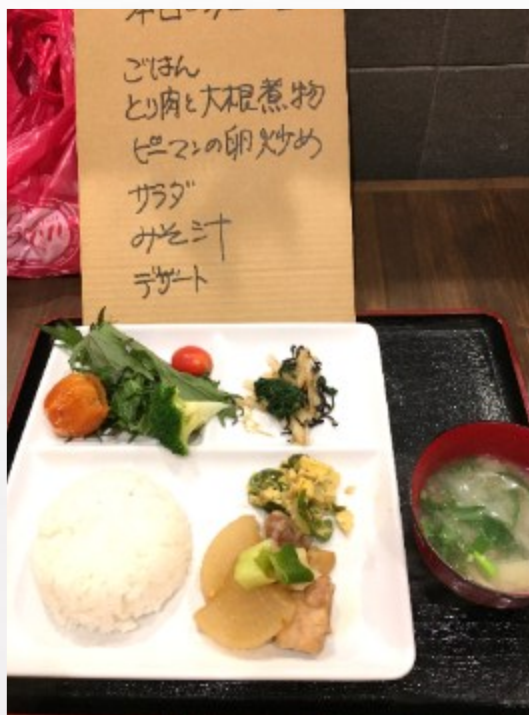 本日のメニュー
ごはん
とり肉と大根煮物
ピーマンの卵炒め
サラダ
みそ汁
デザート